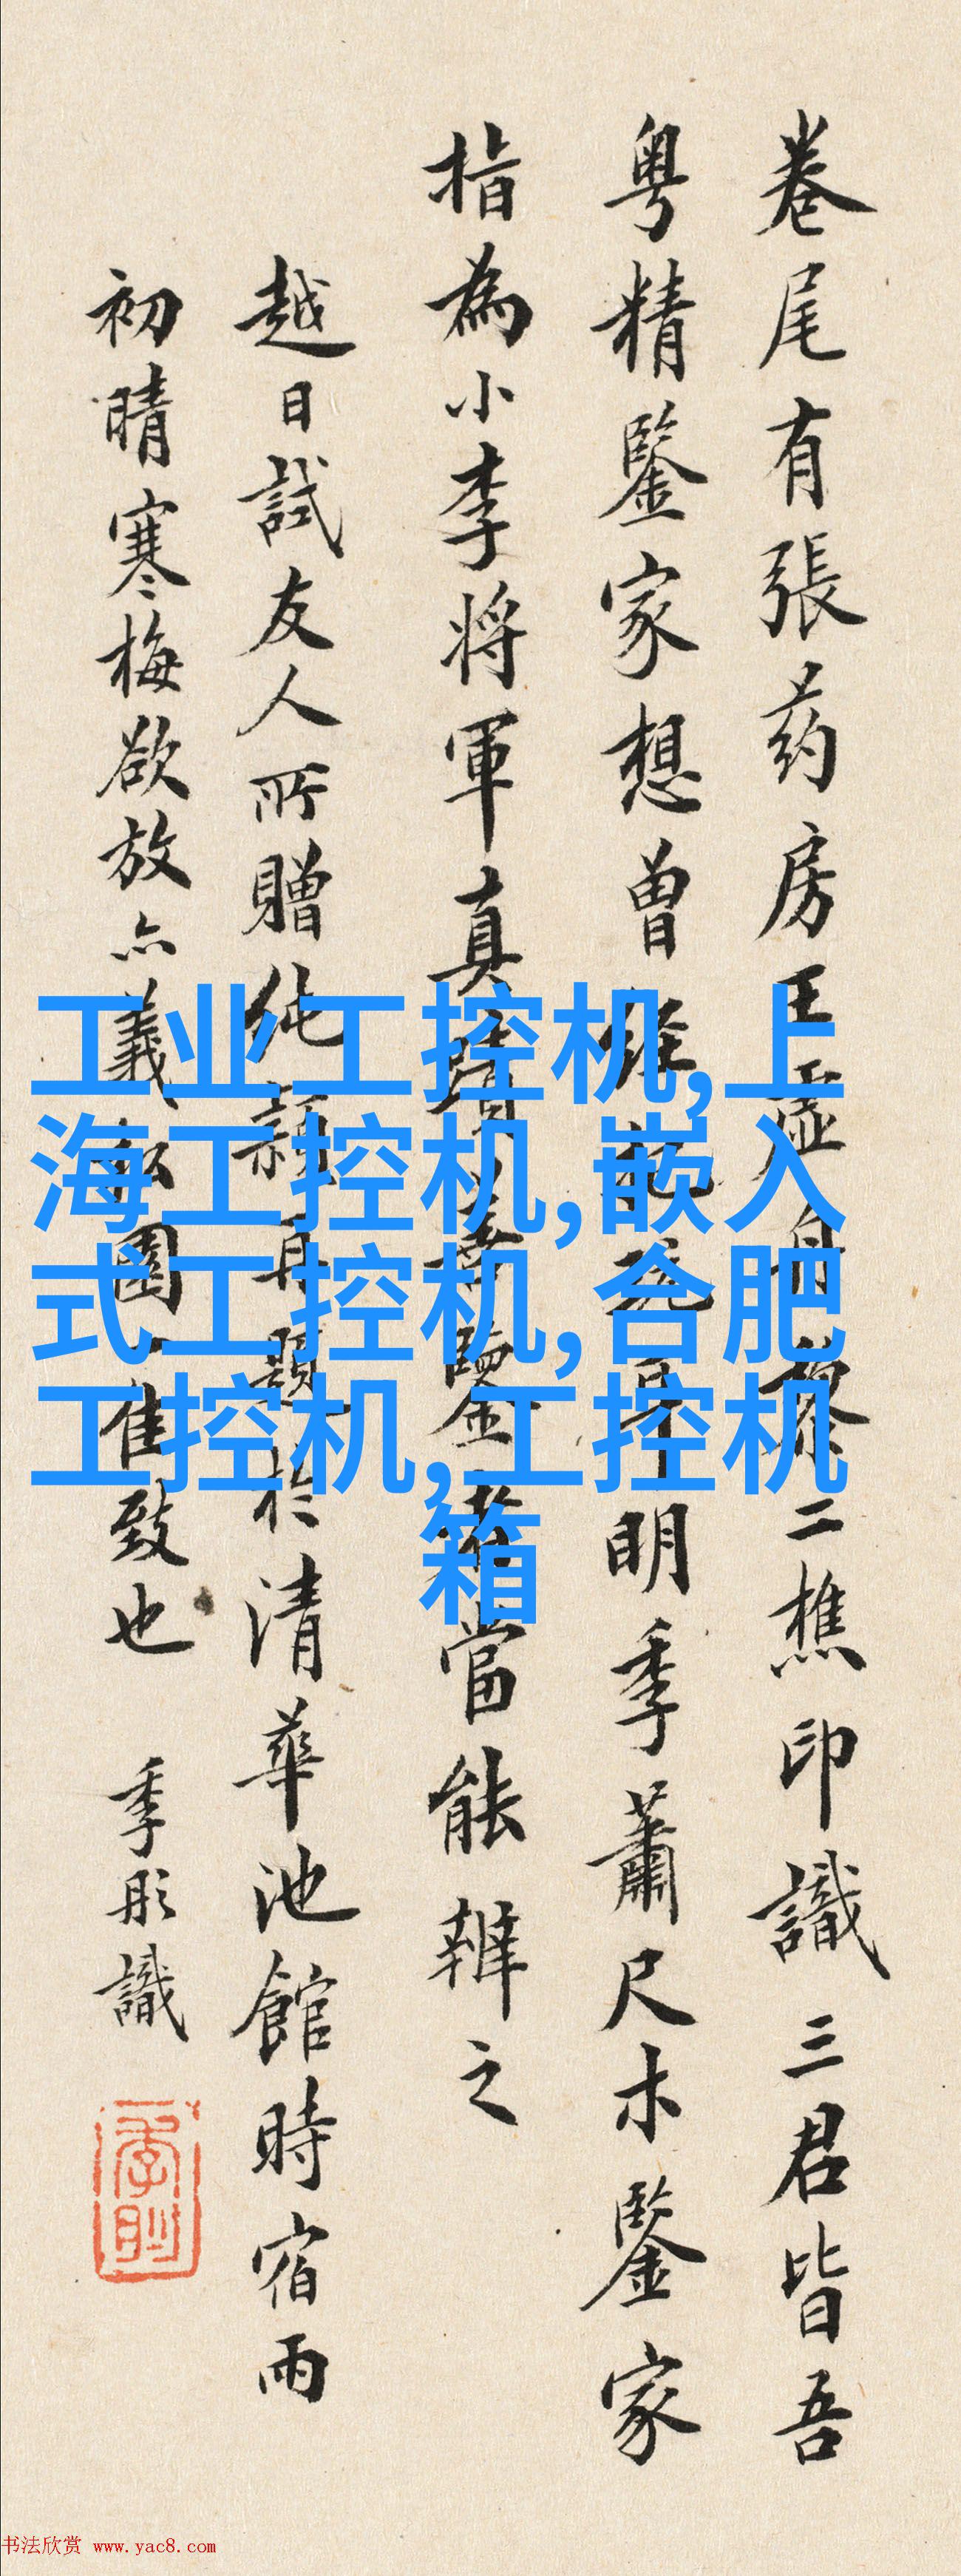 卷尾有張药房王虛舟黎二樵印識三君皆吾
粤精鑒家想曾明季蕭尺木鑒家
指為小李將軍真鑒者當能辨之
越日試友人所贈純穎再題於清華池館時宿雨
初晴寒梅欲放亦義園佳致也 季彤識
工业工控机,上
海工控机,嵌入
式工控机,合肥
工控机,工控机
箱
书法欣赏 www.yac8.com